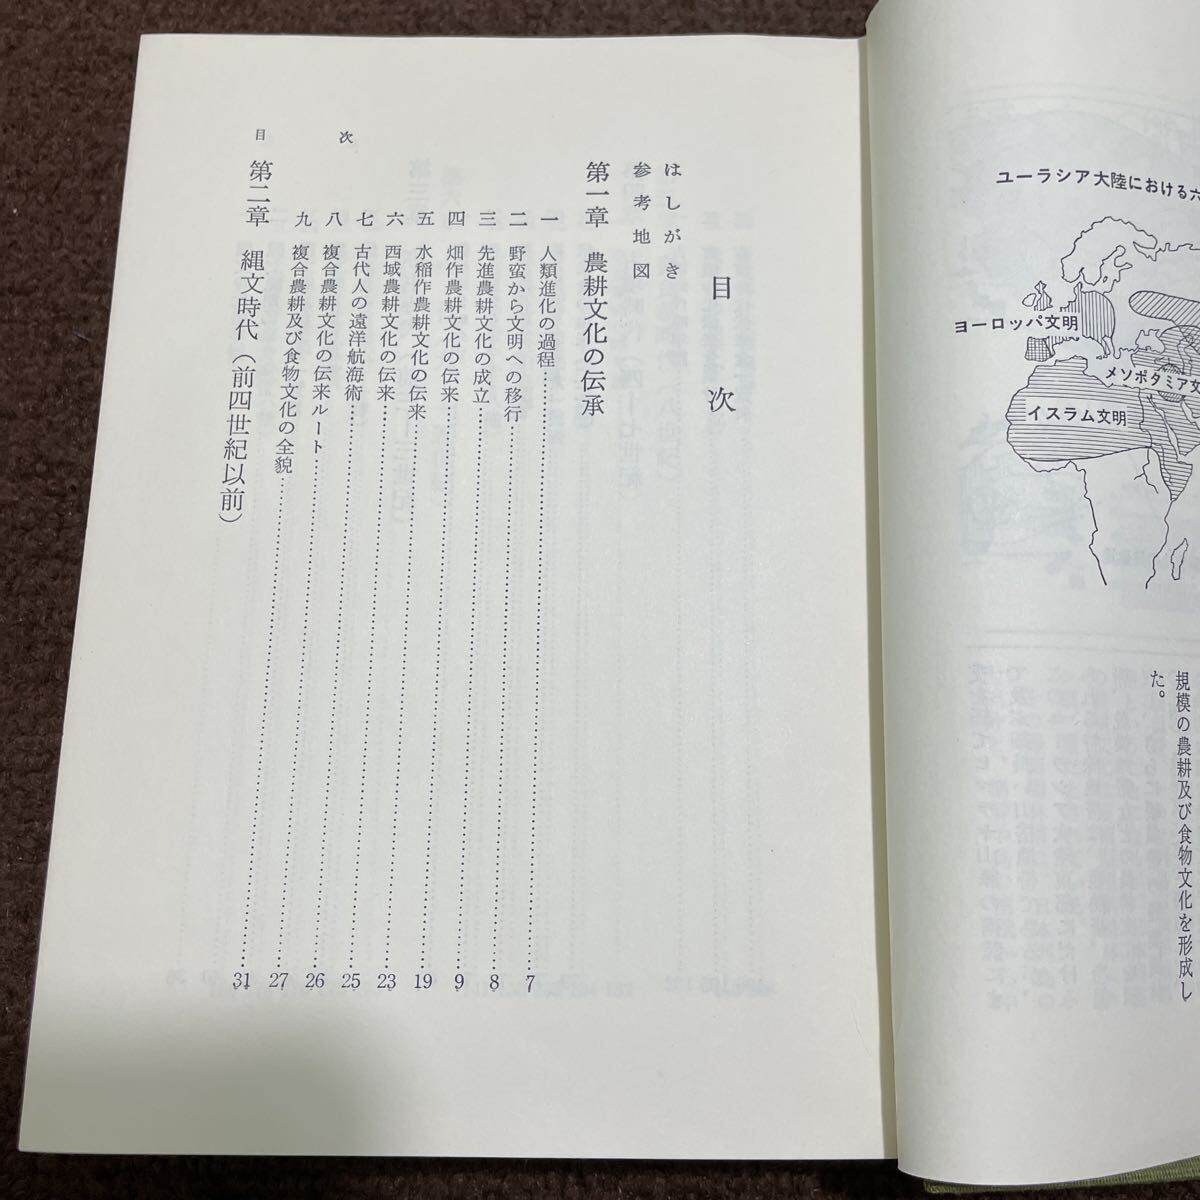 ユーラシア大陸における六
ヨーロッパ文明
メソポタミア文
イスラム文明
規模の農耕及び食物文化を形成し
た。
目　次
はしがき
参考地図
第一章　農耕文化の伝承
一　人類進化の過程……7
二　野蛮から文明への移行……8
三　先進農耕文化の成立……9
四　畑作農耕文化の伝来……19
五　水稲作農耕文化の伝来……23
六　西域農耕文化の伝来……25
七　古代人の遠洋航海術……26
八　複合農耕文化の伝来ルート……27
九　複合農耕及び食物文化の全貌……31
第二章　縄文時代（前四世紀以前）
目　次